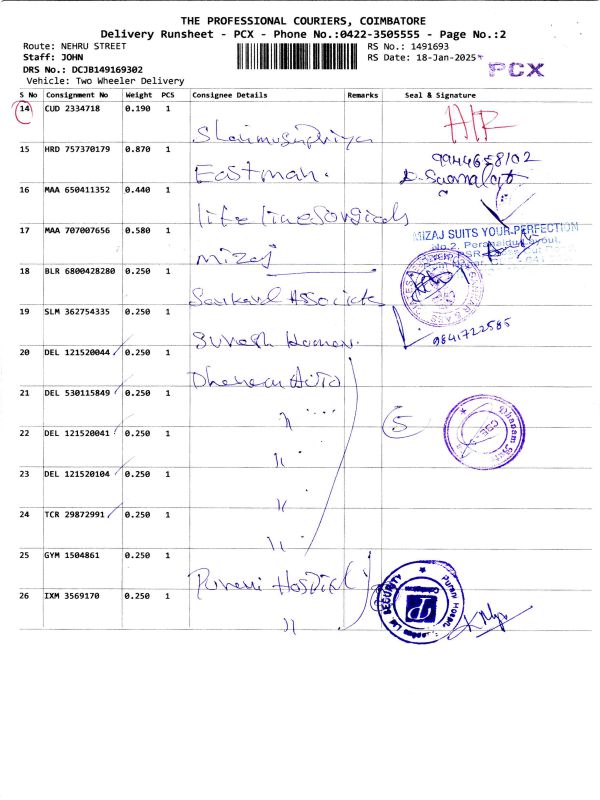 THE PROFESSIONAL COURIERS, COIMBATORE
Delivery Runsheet - PCX - Phone No.:0422-3505555 - Page No.:2
Route: NEHRU STREET
RS No.: 1491693
Staff: JOHN
RS Date: 18-Jan-2025
DRS No.: DCJB149169302
PCX
Vehicle: Two Wheeler Delivery
S No Consignment No Weight PCS Consignee Details Remarks Seal & Signature
14 CUD 2334718 0.190 1
15 HRD 757370179 0.870 1 Eastman.
9944658102
16 MAA 650411352 0.440 1 life line Surgicals
17 MAA 707007656 0.580 1 Mizaj
MIZAJ SUITS YOUR PERFECTION
18 BLR 6800428280 0.250 1 Associate
19 SLM 362754335 0.250 1
9841722585
20 DEL 121520044 0.250 1 Auto
21 DEL 530115849 0.250 1 "
5
Dhanam
22 DEL 121520041 0.250 1 "
23 DEL 121520104 0.250 1 "
24 TCR 29872991 0.250 1 "
25 GYM 1504861 0.250 1 Purani Hospital
SECURITY
26 IXM 3569170 0.250 1 "